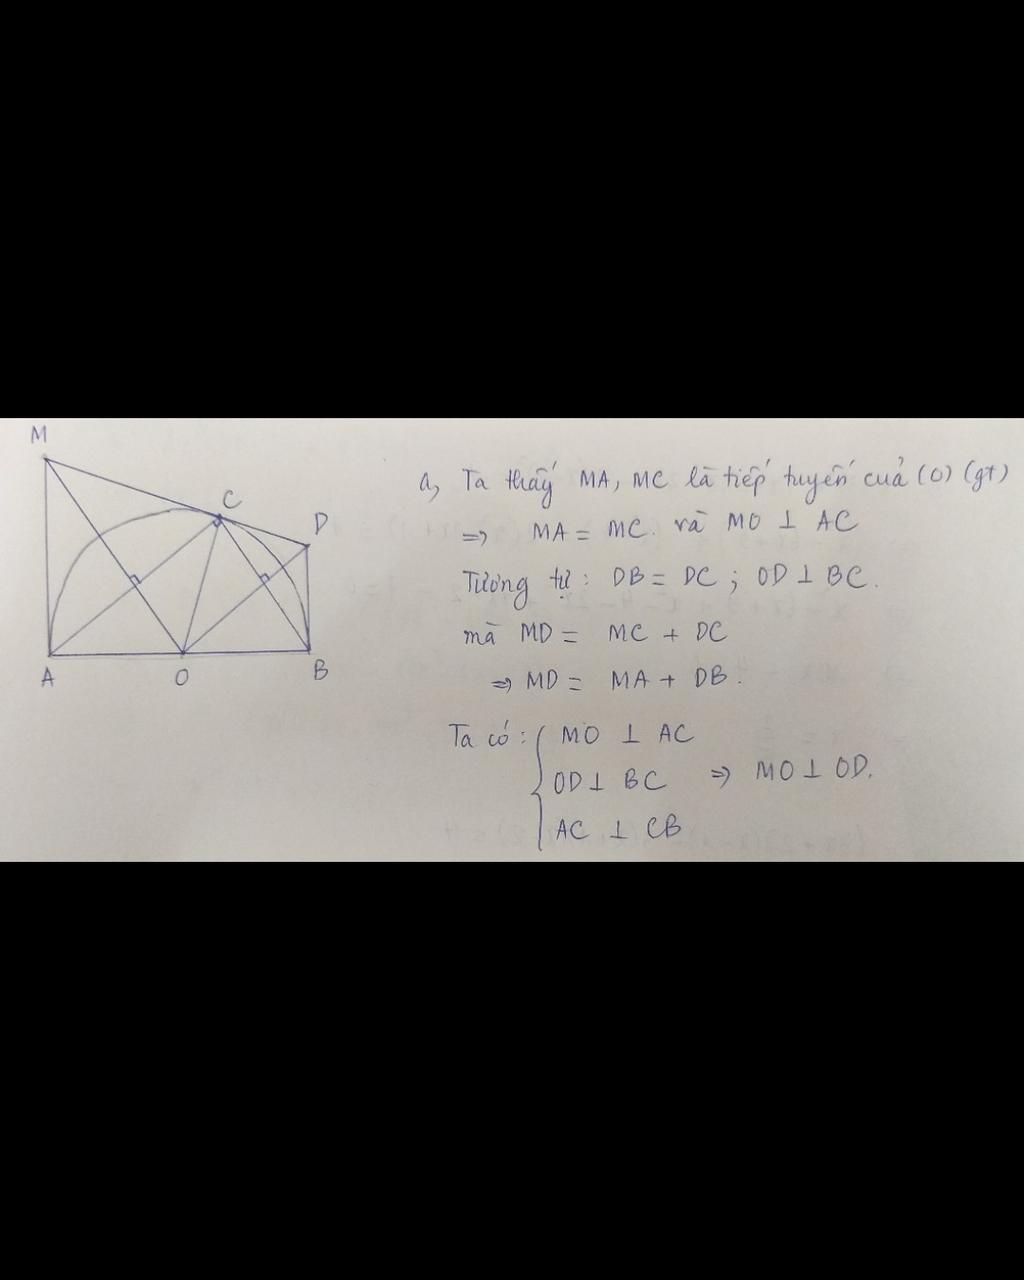 M
C
D
A
O
B
a, Ta thấy MA, MC là tiếp tuyến của (O) (gt)
=> MA = MC. và MO ⊥ AC
Tương tự : DB = DC ; OD ⊥ BC.
mà MD = MC + DC
=> MD = MA + DB.
Ta có : { MO ⊥ AC
OD ⊥ BC => MO ⊥ OD.
AC ⊥ CB